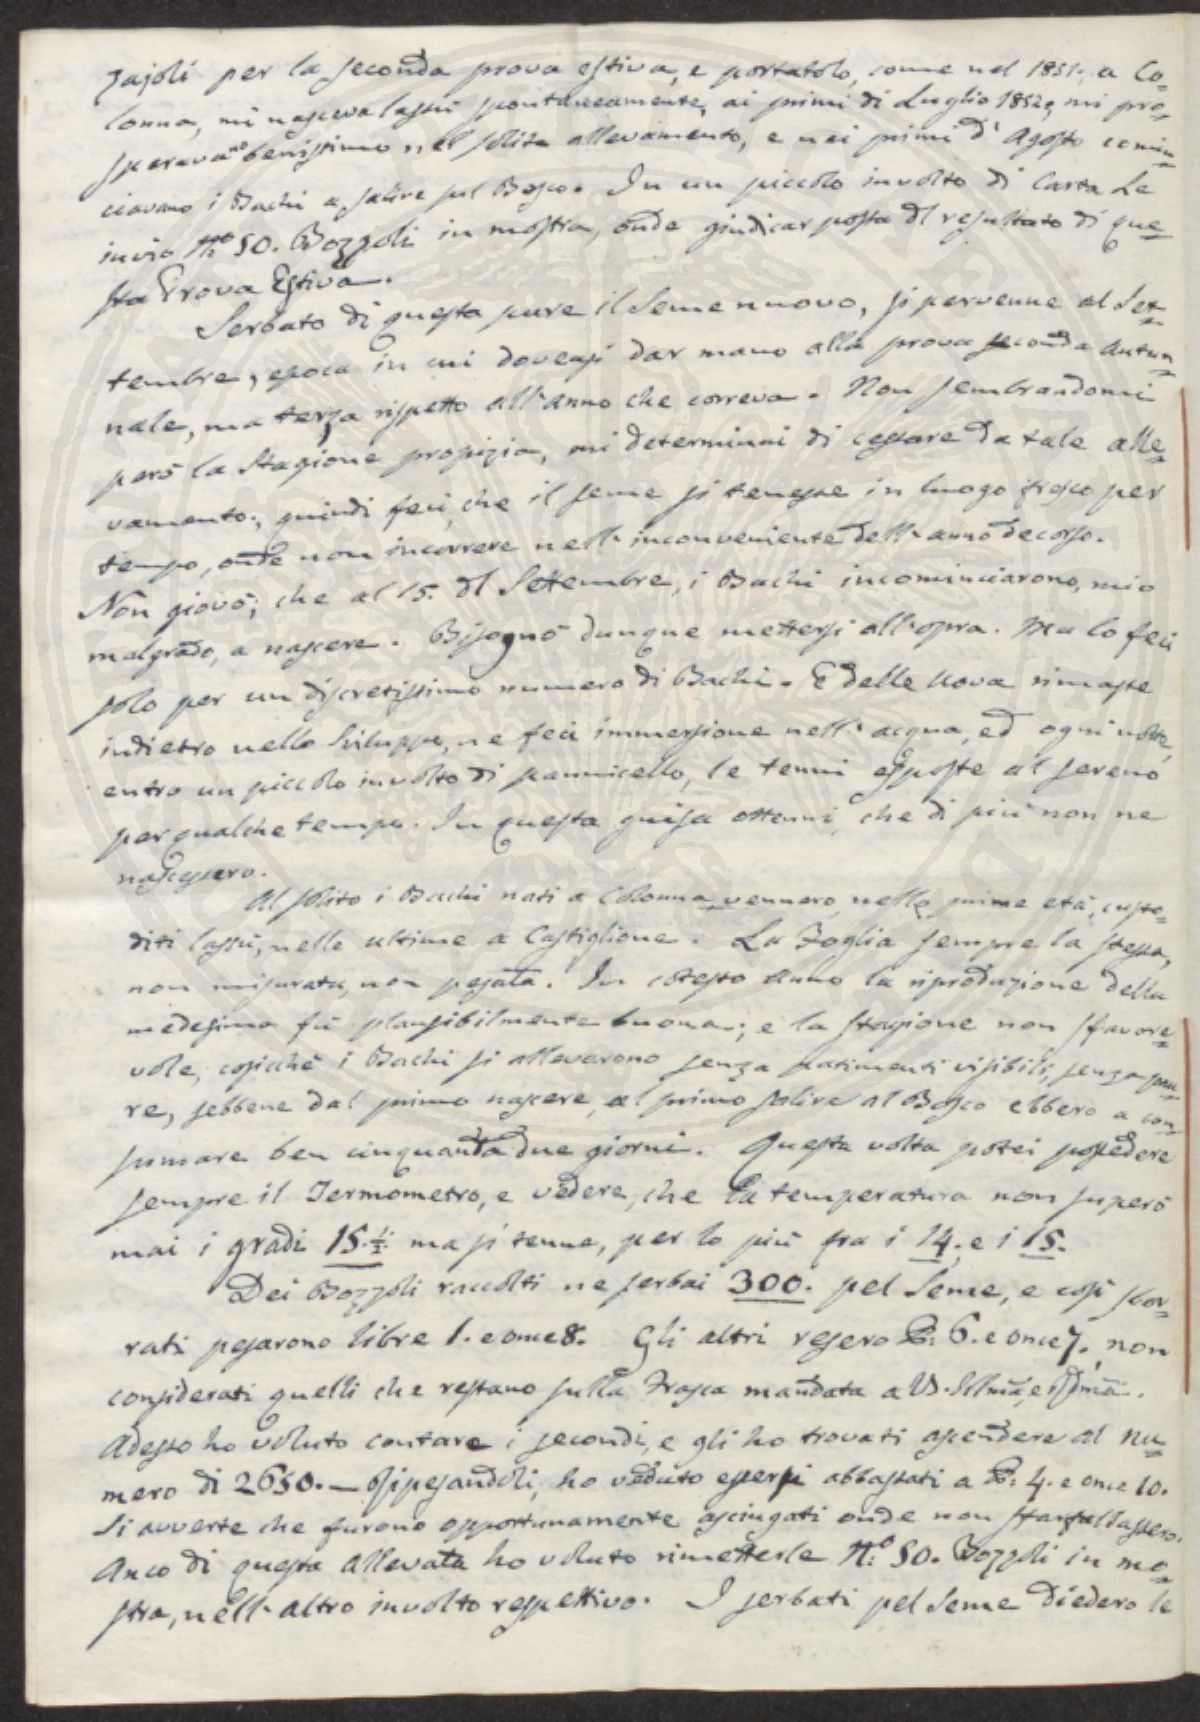 zajoli per la seconda prova estiva, e portatolo, come nel 1851., a Co=
lonna, mi nasceva lassù spontaneamente, ai primi di Luglio 1852, mi pro=
speravano benissimo nel solito allevamento, e nei primi d'Agosto comin=
ciavano i Bachi a salire sul Bosco. In un piccolo involto di Carta Le
invio N.º 50. Bozzoli in mostra, onde giudicar possa del resultato di que=
sta Prova Estiva.
Serbato di questa pure il Seme nuovo, si pervenne al Set=
tembre, epoca in cui doveasi dar mano alla prova seconda Autun=
nale, ma terza rispetto all'anno che correva. Non sembrandomi
però la Stagione propizia, mi determinai di cessare da tale alle=
vamento; quindi feci, che il seme si tenesse in luogo fresco per
tempo, onde non incorrere nell'inconveniente dell'anno decorso.
Non giovò; che al 15. del Settembre, i Bachi incominciarono, mio
malgrado, a nascere. Bisognò dunque mettersi all'opra. Ma lo feci
solo per un discretissimo numero di Bachi. E delle Uova rimaste
indietro nello Sviluppo, ne feci immersione nell'acqua, ed ogni notte,
entro un piccolo involto di pannicello, le tenni esposte al sereno
per qualche tempo. In questa guisa ottenni, che di più non ne
nascessero.
Al solito i Bachi nati a Colonna vennero, nelle prime età, custo=
diti lassù, nelle ultime a Castiglione. La Foglia sempre la stessa,
non misurata, non pesata. In cotesto anno la riproduzione della
medesima fù plausibilmente buona; e la stagione non sfavore=
vole, cosicchè i Bachi si allevarono senza patimenti visibili, senza pau=
re, sebbene dal primo nascere, al primo salire al Bosco ebbero a con=
sumare ben cinquantadue giorni. Questa volta potei possedere
sempre il Termometro, e vedere, che la temperatura non superò
mai i gradi 15.½. ma si tenne, per lo più fra i 14. e i 15.
Dei Bozzoli raccolti ne serbai 300. pel Seme, e così sfar=
rati pesarono libre 1. e once 8. Gli altri resero ℔: 6. e once 7., non
considerati quelli che restano sulla Frasca mandata a VS. Illma, e Rdma.
Adesso ho voluto contare i secondi, e gli ho trovati ascendere al nu=
mero di 2650. — Ripesandoli, ho veduto essersi abbassati a ℔: 4. e once 10.
Si avverte che furono opportunamente asciugati onde non sfarfallassero.
Anco di questa Allevata ho voluto rimetterle N.º 50. Bozzoli in mo=
stra, nell'altro involto respettivo. I serbati pel Seme diedero le